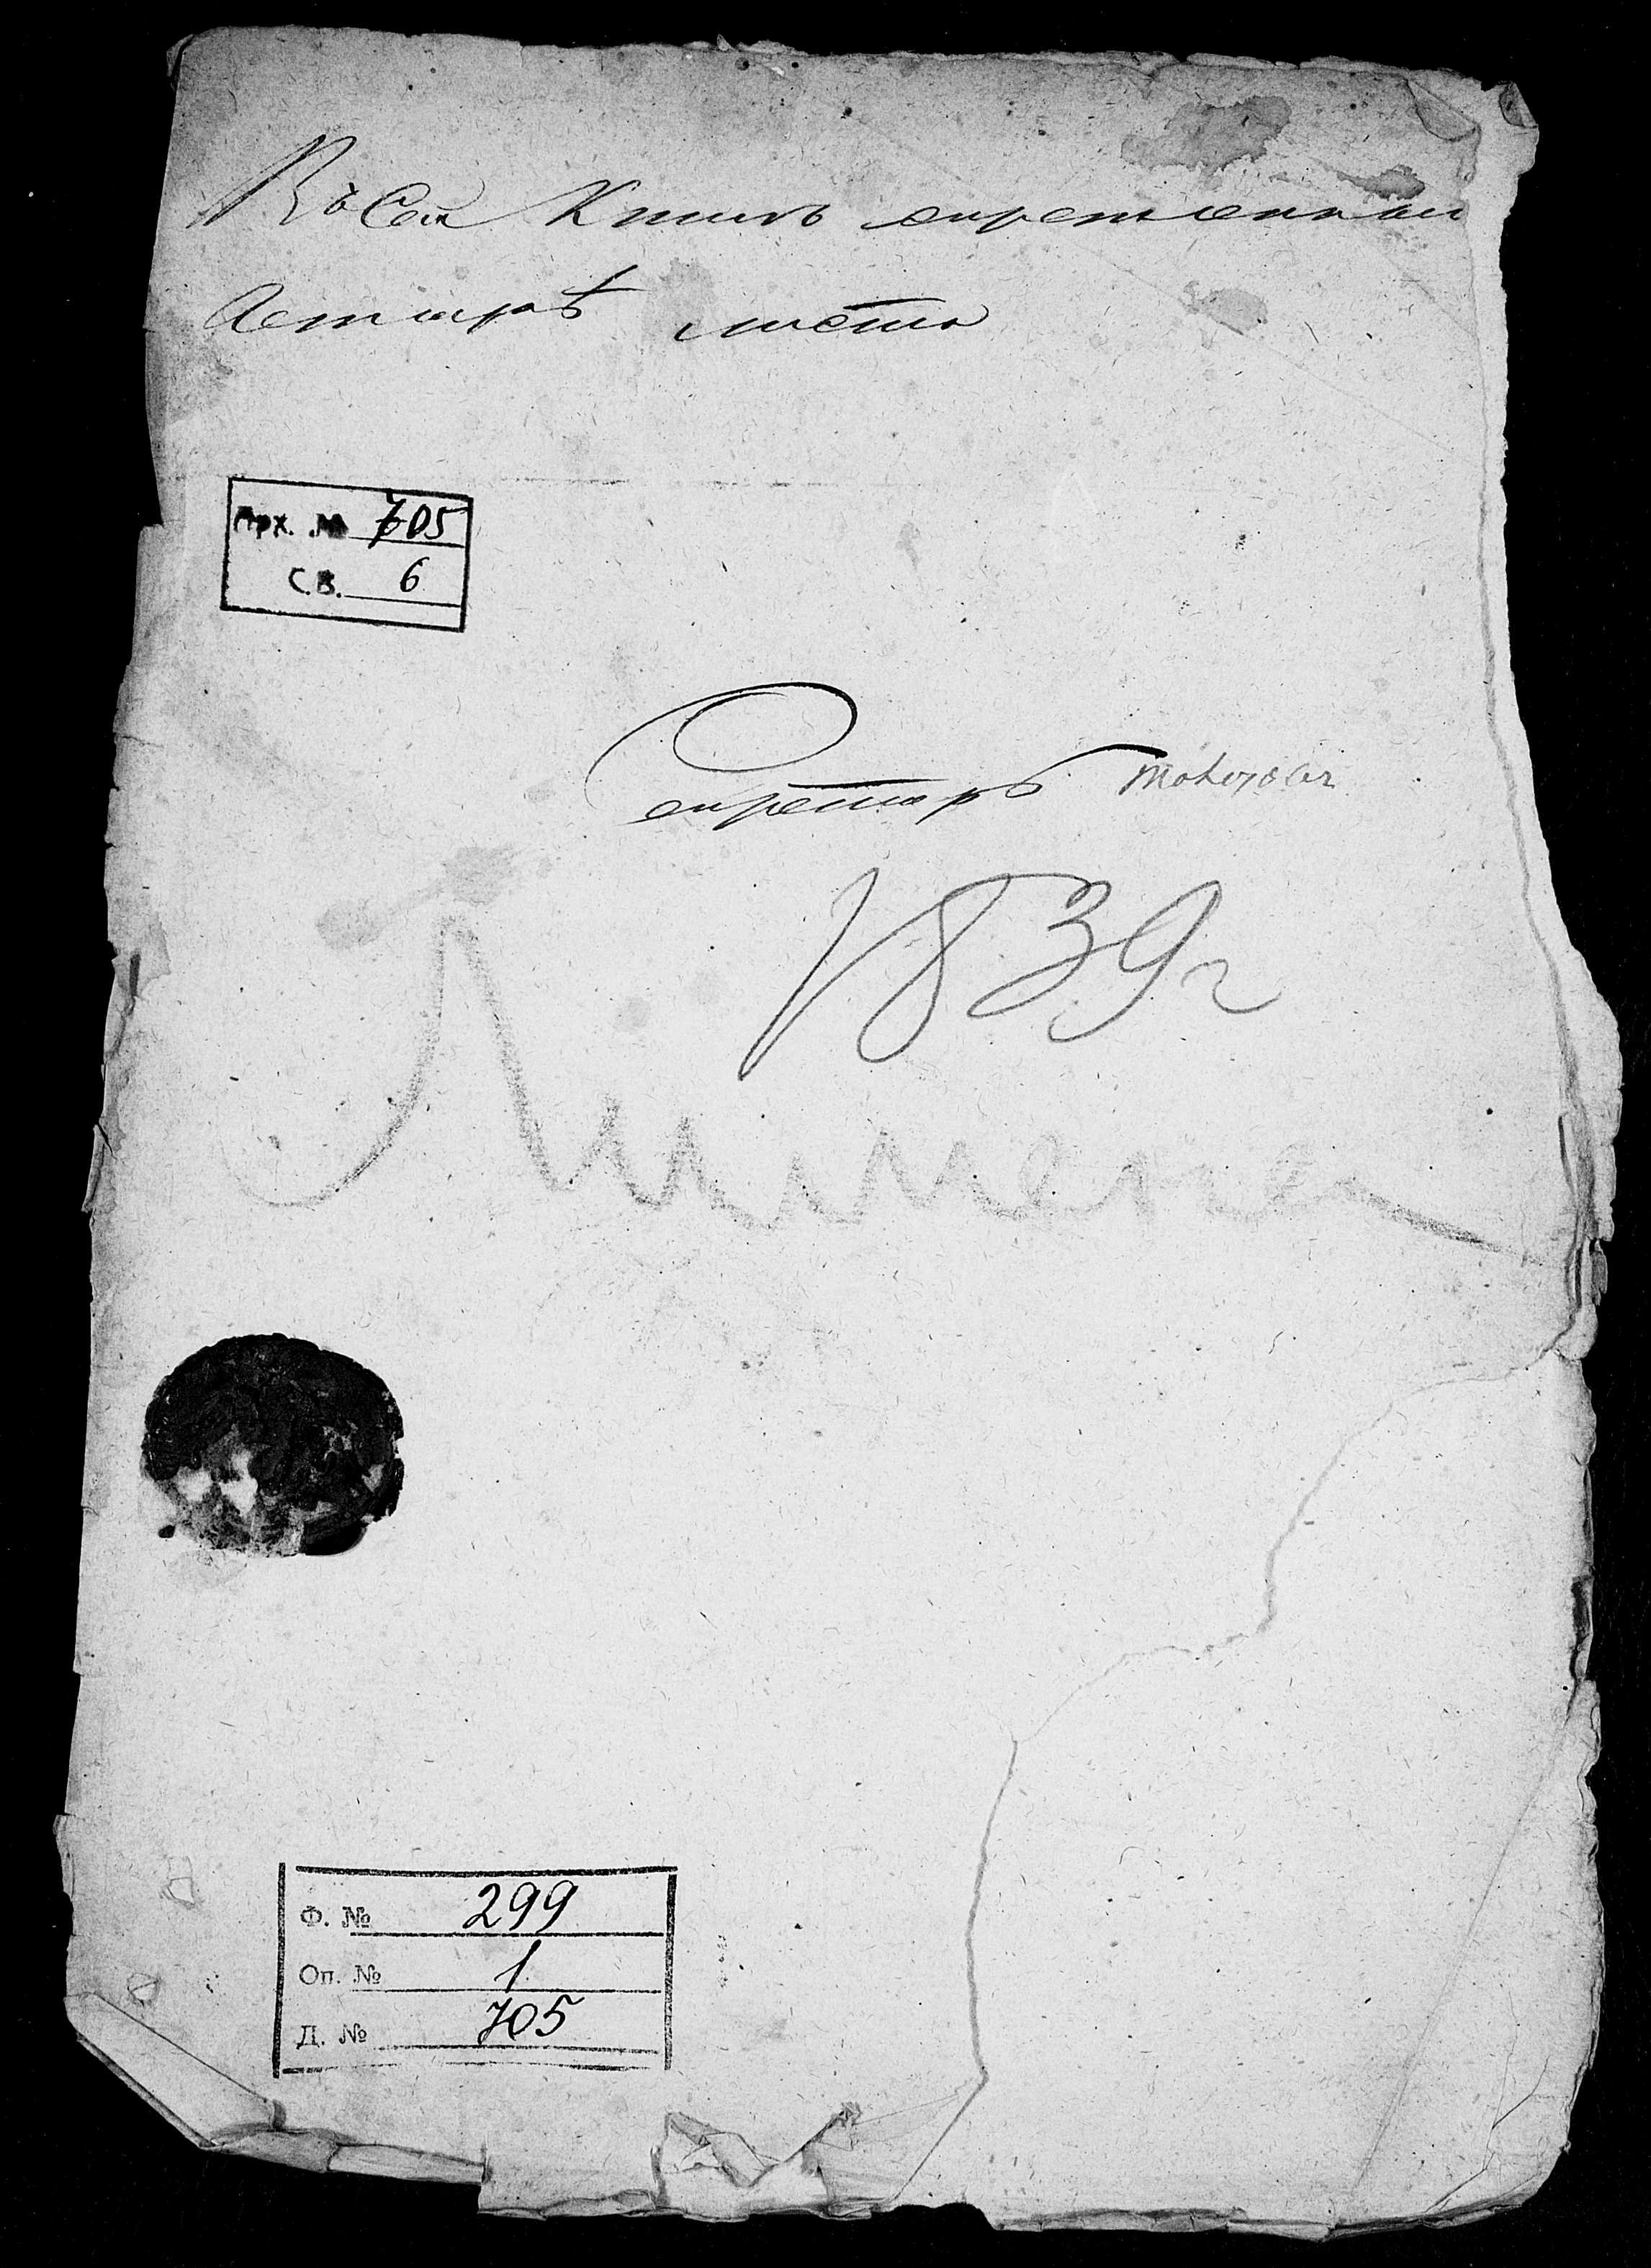 Въ сей Книгѣ скрепленной
четыре листа
Арх. № 705
С.В. 6
Секретарь
1839 г
Ф. № 299
Оп. № 1
Д. № 705